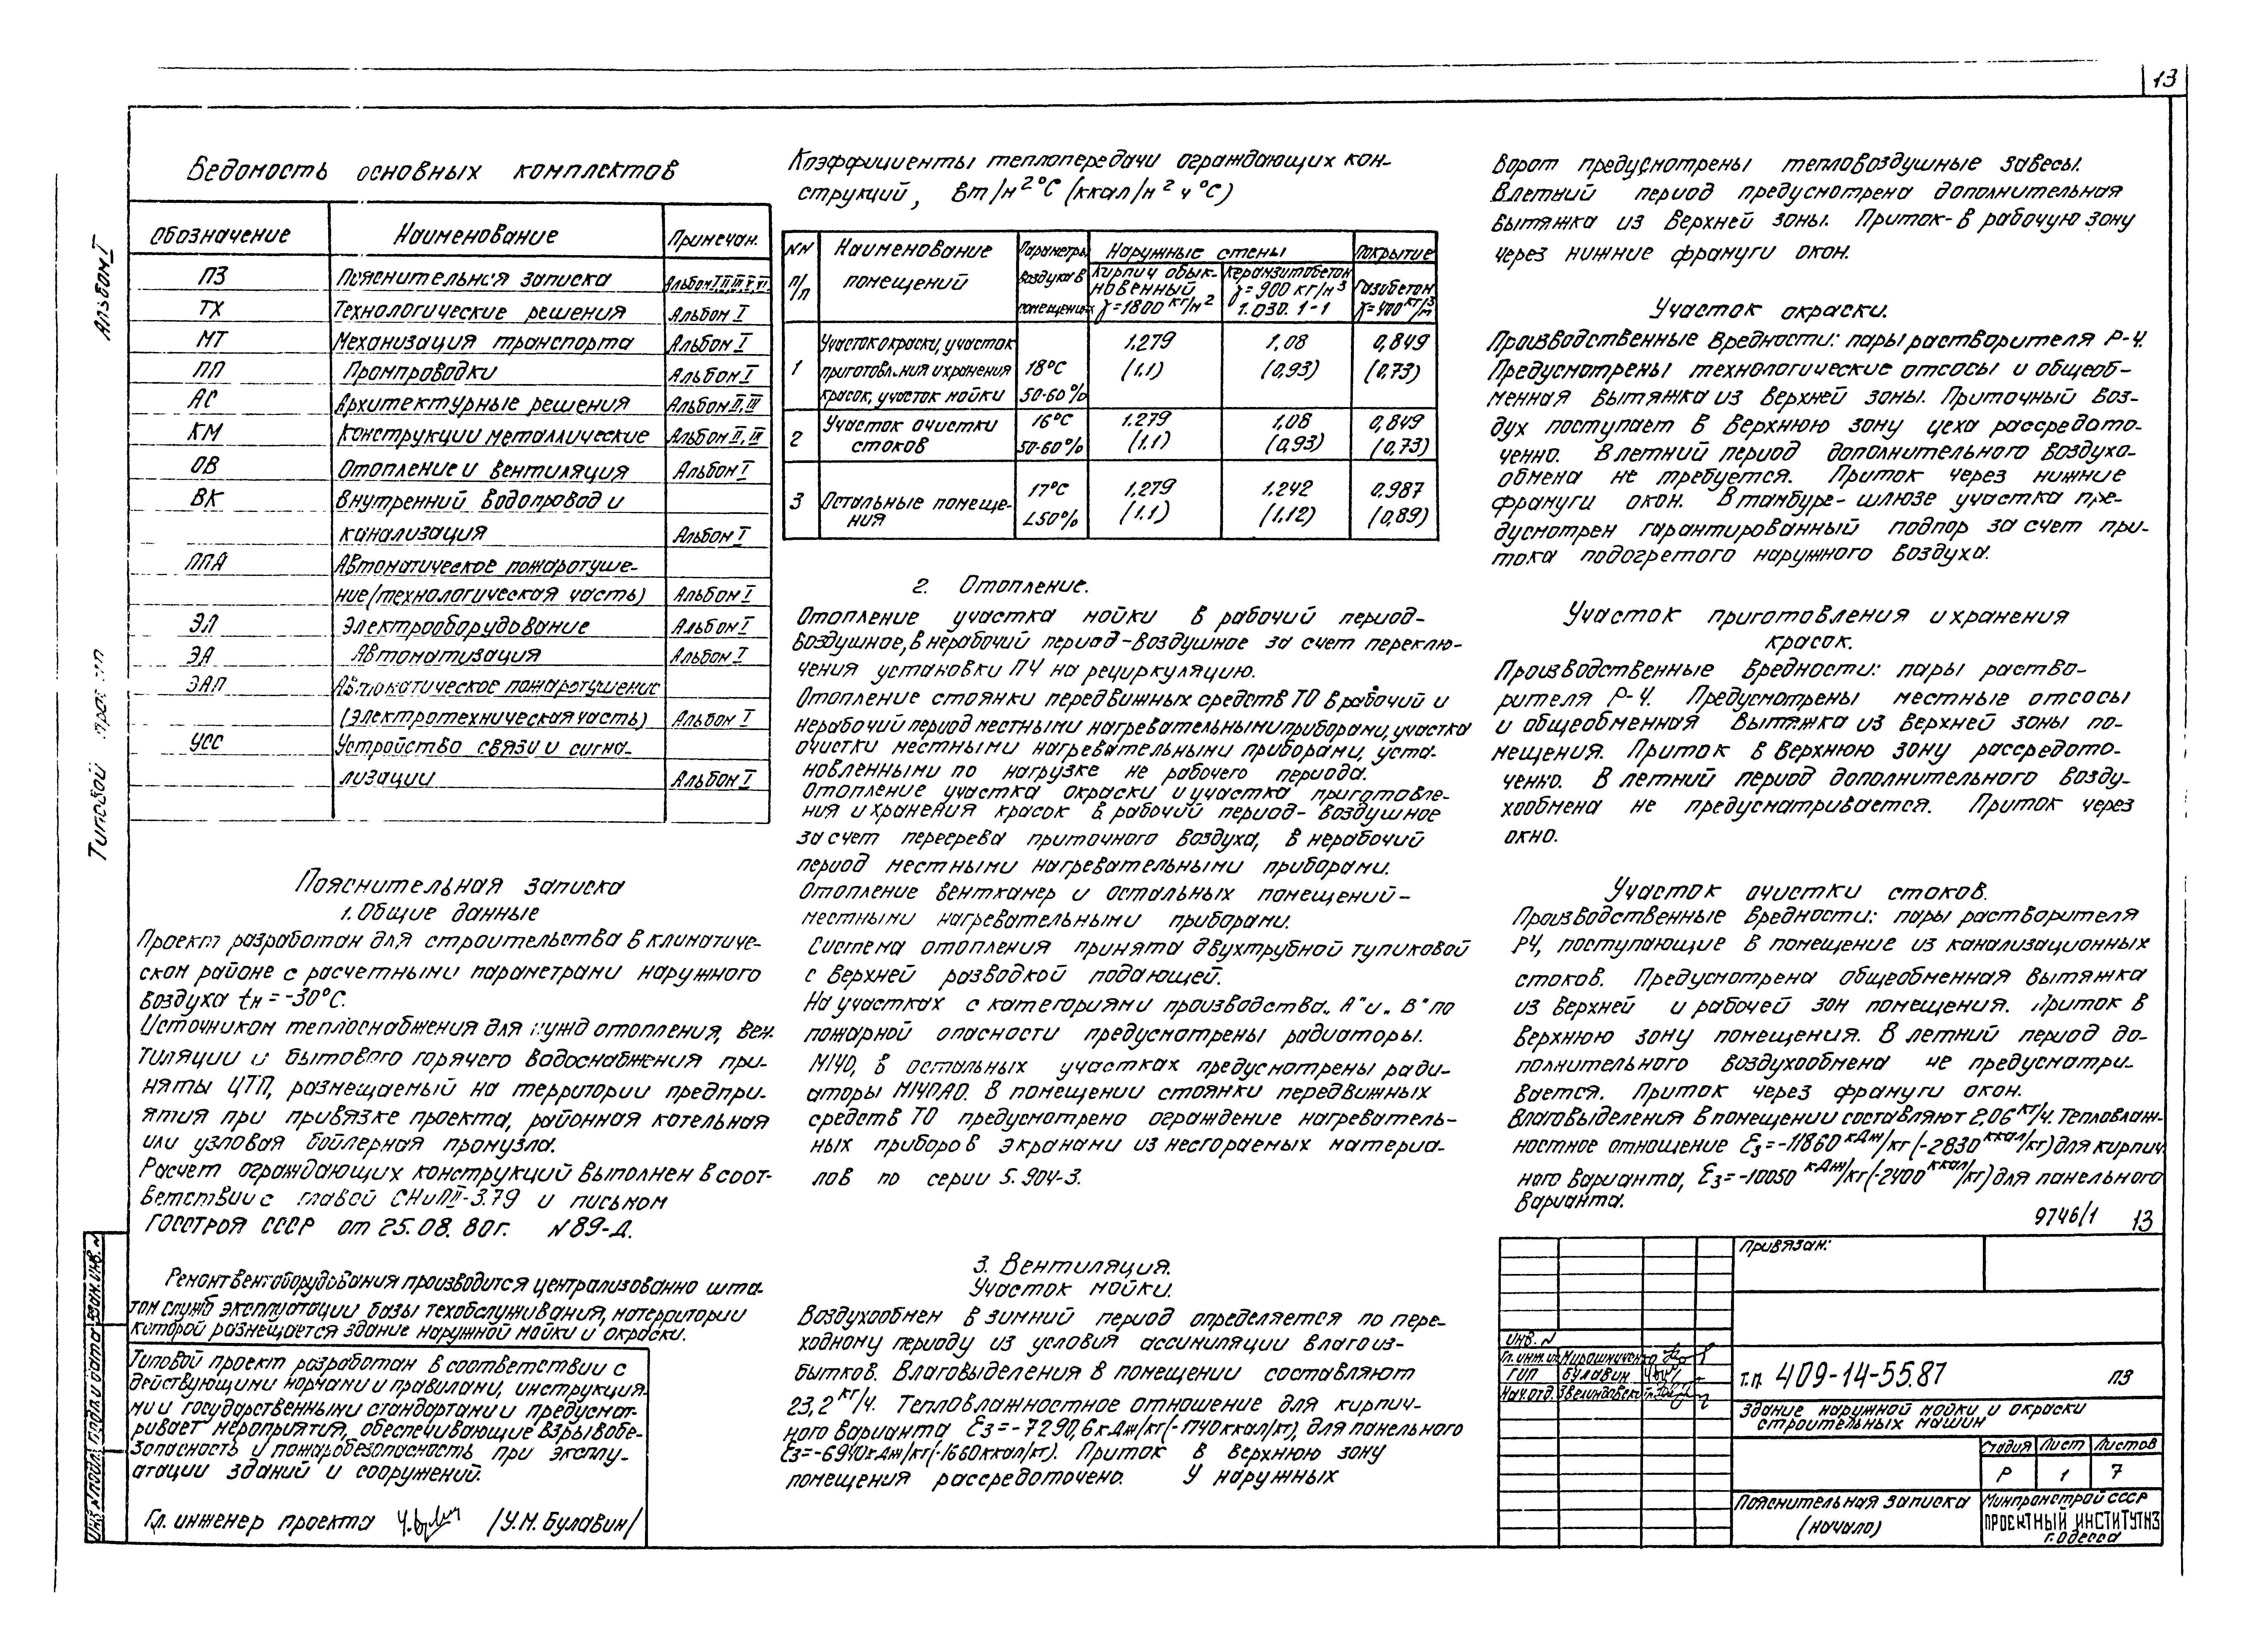 13
Альбом I
Типовой
Ведомость основных комплектов
Обозначение Наименование Примечан.
ПЗ Пояснительная записка Альбом I, II, III, V, VI
ТХ Технологические решения Альбом I
МТ Механизация транспорта Альбом I
ПП Промпроводки Альбом I
АС Архитектурные решения Альбом II, III
КМ Конструкции металлические Альбом II, III
ОВ Отопление и вентиляция Альбом I
ВК Внутренний водопровод и
канализация Альбом I
ППА Автоматическое пожаротуше-
ние (технологическая часть) Альбом I
ЭЛ Электрооборудование Альбом I
ЭА Автоматизация Альбом I
ЭАП Автоматическое пожаротушение
(электротехническая часть) Альбом I
УСС Устройство связи и сигна-
лизации Альбом I
Пояснительная записка
1. Общие данные
Проект разработан для строительства в климатиче-
ском районе с расчетными параметрами наружного
воздуха tн = -30°С.
Источником теплоснабжения для нужд отопления, вен-
тиляции и бытового горячего водоснабжения при-
няты ЦТП, размещаемый на территории предпри-
ятия при привязке проекта, районная котельная
или узловая бойлерная промузла.
Расчет ограждающих конструкций выполнен в соот-
ветствии с главой СНиП II-3.79 и письмом
ГОССТРОЯ СССР от 25.08.80г. №89-Д.
Ремонт вентоборудования производится централизованно шта-
том служб эксплуатации базы техобслуживания, на территории
которой размещается здание наружной мойки и окраски.
Типовой проект разработан в соответствии с
действующими нормами и правилами, инструкция-
ми и государственными стандартами и предусмат-
ривает мероприятия, обеспечивающие взрывобе-
зопасность и пожаробезопасность при эксплу-
атации зданий и сооружений.
Гл. инженер проекта /У.М. Булавин/
Инв. № подл. Подп. и дата Взам. инв. №
Коэффициенты теплопередачи ограждающих кон-
струкций, Вт/м²°С (ккал/м² ч °С)
NN п/п Наименование помещений Параметры воздуха в помещениях Наружные стены Покрытие
Кирпич обык- Керамзитобетон Газобетон
новенный γ = 900 кг/м³ γ = 400 кг/м³
γ = 1800 кг/м² 1.030.1-1
1 Участок окраски, участок 1.279 1,08 0,849
приготовл.ния и хранения 18°С (1.1) (0,93) (0,73)
красок, участок мойки 50-60%
2 Участок очистки 16°С 1.279 1,08 0,849
стоков 50-60% (1.1) (0,93) (0,73)
3 Остальные помеще- 17°С 1.279 1.242 0.987
ния ∠50% (1.1) (1.12) (0,89)
2. Отопление.
Отопление участка мойки в рабочий период-
воздушное, в нерабочий период-воздушное за счет переклю-
чения установки П4 на рециркуляцию.
Отопление стоянки передвижных средств ТО в рабочий и
нерабочий период местными нагревательными приборами, участка
очистки местными нагревательными приборами, уста-
новленными по нагрузке не рабочего периода.
Отопление участка окраски и участка приготовле-
ния и хранения красок в рабочий период- воздушное
за счет перегрева приточного воздуха, в нерабочий
период местными нагревательными приборами.
Отопление венткамер и остальных помещений-
местными нагревательными приборами.
Система отопления принята двухтрубной тупиковой
с верхней разводкой подающей.
На участках с категориями производства „А" и „В" по
пожарной опасности предусмотрены радиаторы.
М140, в остальных участках предусмотрены ради-
аторы М140АО. В помещении стоянки передвижных
средств ТО предусмотрено ограждение нагреватель-
ных приборов экранами из несгораемых материа-
лов по серии 5.904-3.
3. Вентиляция.
Участок мойки.
Воздухообмен в зимний период определяется по пере-
ходному периоду из условия ассимиляции влагоиз-
бытков. Влаговыделения в помещении составляют
23,2 кг/ч. Тепловлажностное отношение для кирпич-
ного варианта Ɛз=-7290,6 кДж/кг(-1740ккал/кг), для панельного
Ɛз=-6940кДж/кг(-1660ккал/кг). Приток в верхнюю зону
помещения рассредоточено. У наружных
ворот предусмотрены тепловоздушные завесы.
В летний период предусмотрена дополнительная
вытяжка из верхней зоны. Приток- в рабочую зону
через нижние фрамуги окон.
Участок окраски.
Производственные вредности: пары растворителя Р-4.
Предусмотрены технологические отсосы и общеоб-
менная вытяжка из верхней зоны. Приточный воз-
дух поступает в верхнюю зону цеха рассредото-
ченно. В летний период дополнительного воздухо-
обмена не требуется. Приток через нижние
фрамуги окон. В тамбуре-шлюзе участка пре-
дусмотрен гарантированный подпор за счет при-
тока подогретого наружного воздуха.
Участок приготовления и хранения
красок.
Производственные вредности: пары раство-
рителя Р-4. Предусмотрены местные отсосы
и общеобменная вытяжка из верхней зоны по-
мещения. Приток в верхнюю зону рассредото-
ченно. В летний период дополнительного возду-
хообмена не предусматривается. Приток через
окно.
Участок очистки стоков.
Производственные вредности: пары растворителя
Р4, поступающие в помещение из канализационных
стоков. Предусмотрена общеобменная вытяжка
из верхней и рабочей зон помещения. Приток в
верхнюю зону помещения. В летний период до-
полнительного воздухообмена не предусматри-
вается. Приток через фрамуги окон.
Влаговыделения в помещении составляют 2,06 кг/ч. Тепловлаж-
ностное отношение Ɛз=-11860 кДж/кг (-2830 ккал/кг) для кирпич-
ного варианта, Ɛз=-10050 кДж/кг (-2400 ккал/кг) для панельного
варианта.
9746/1 13
Привязан:
Инв. №
Гл. инж. ин. Мирошниченко
ГИП Булавин
Нач. отд.
Т.п. 409-14-55.87 ПЗ
Здание наружной мойки и окраски
строительных машин
Стадия Лист Листов
Р 1 7
Пояснительная записка
(начало)
Минпромстрой СССР
ПРОЕКТНЫЙ ИНСТИТУТ №3
г. Одесса